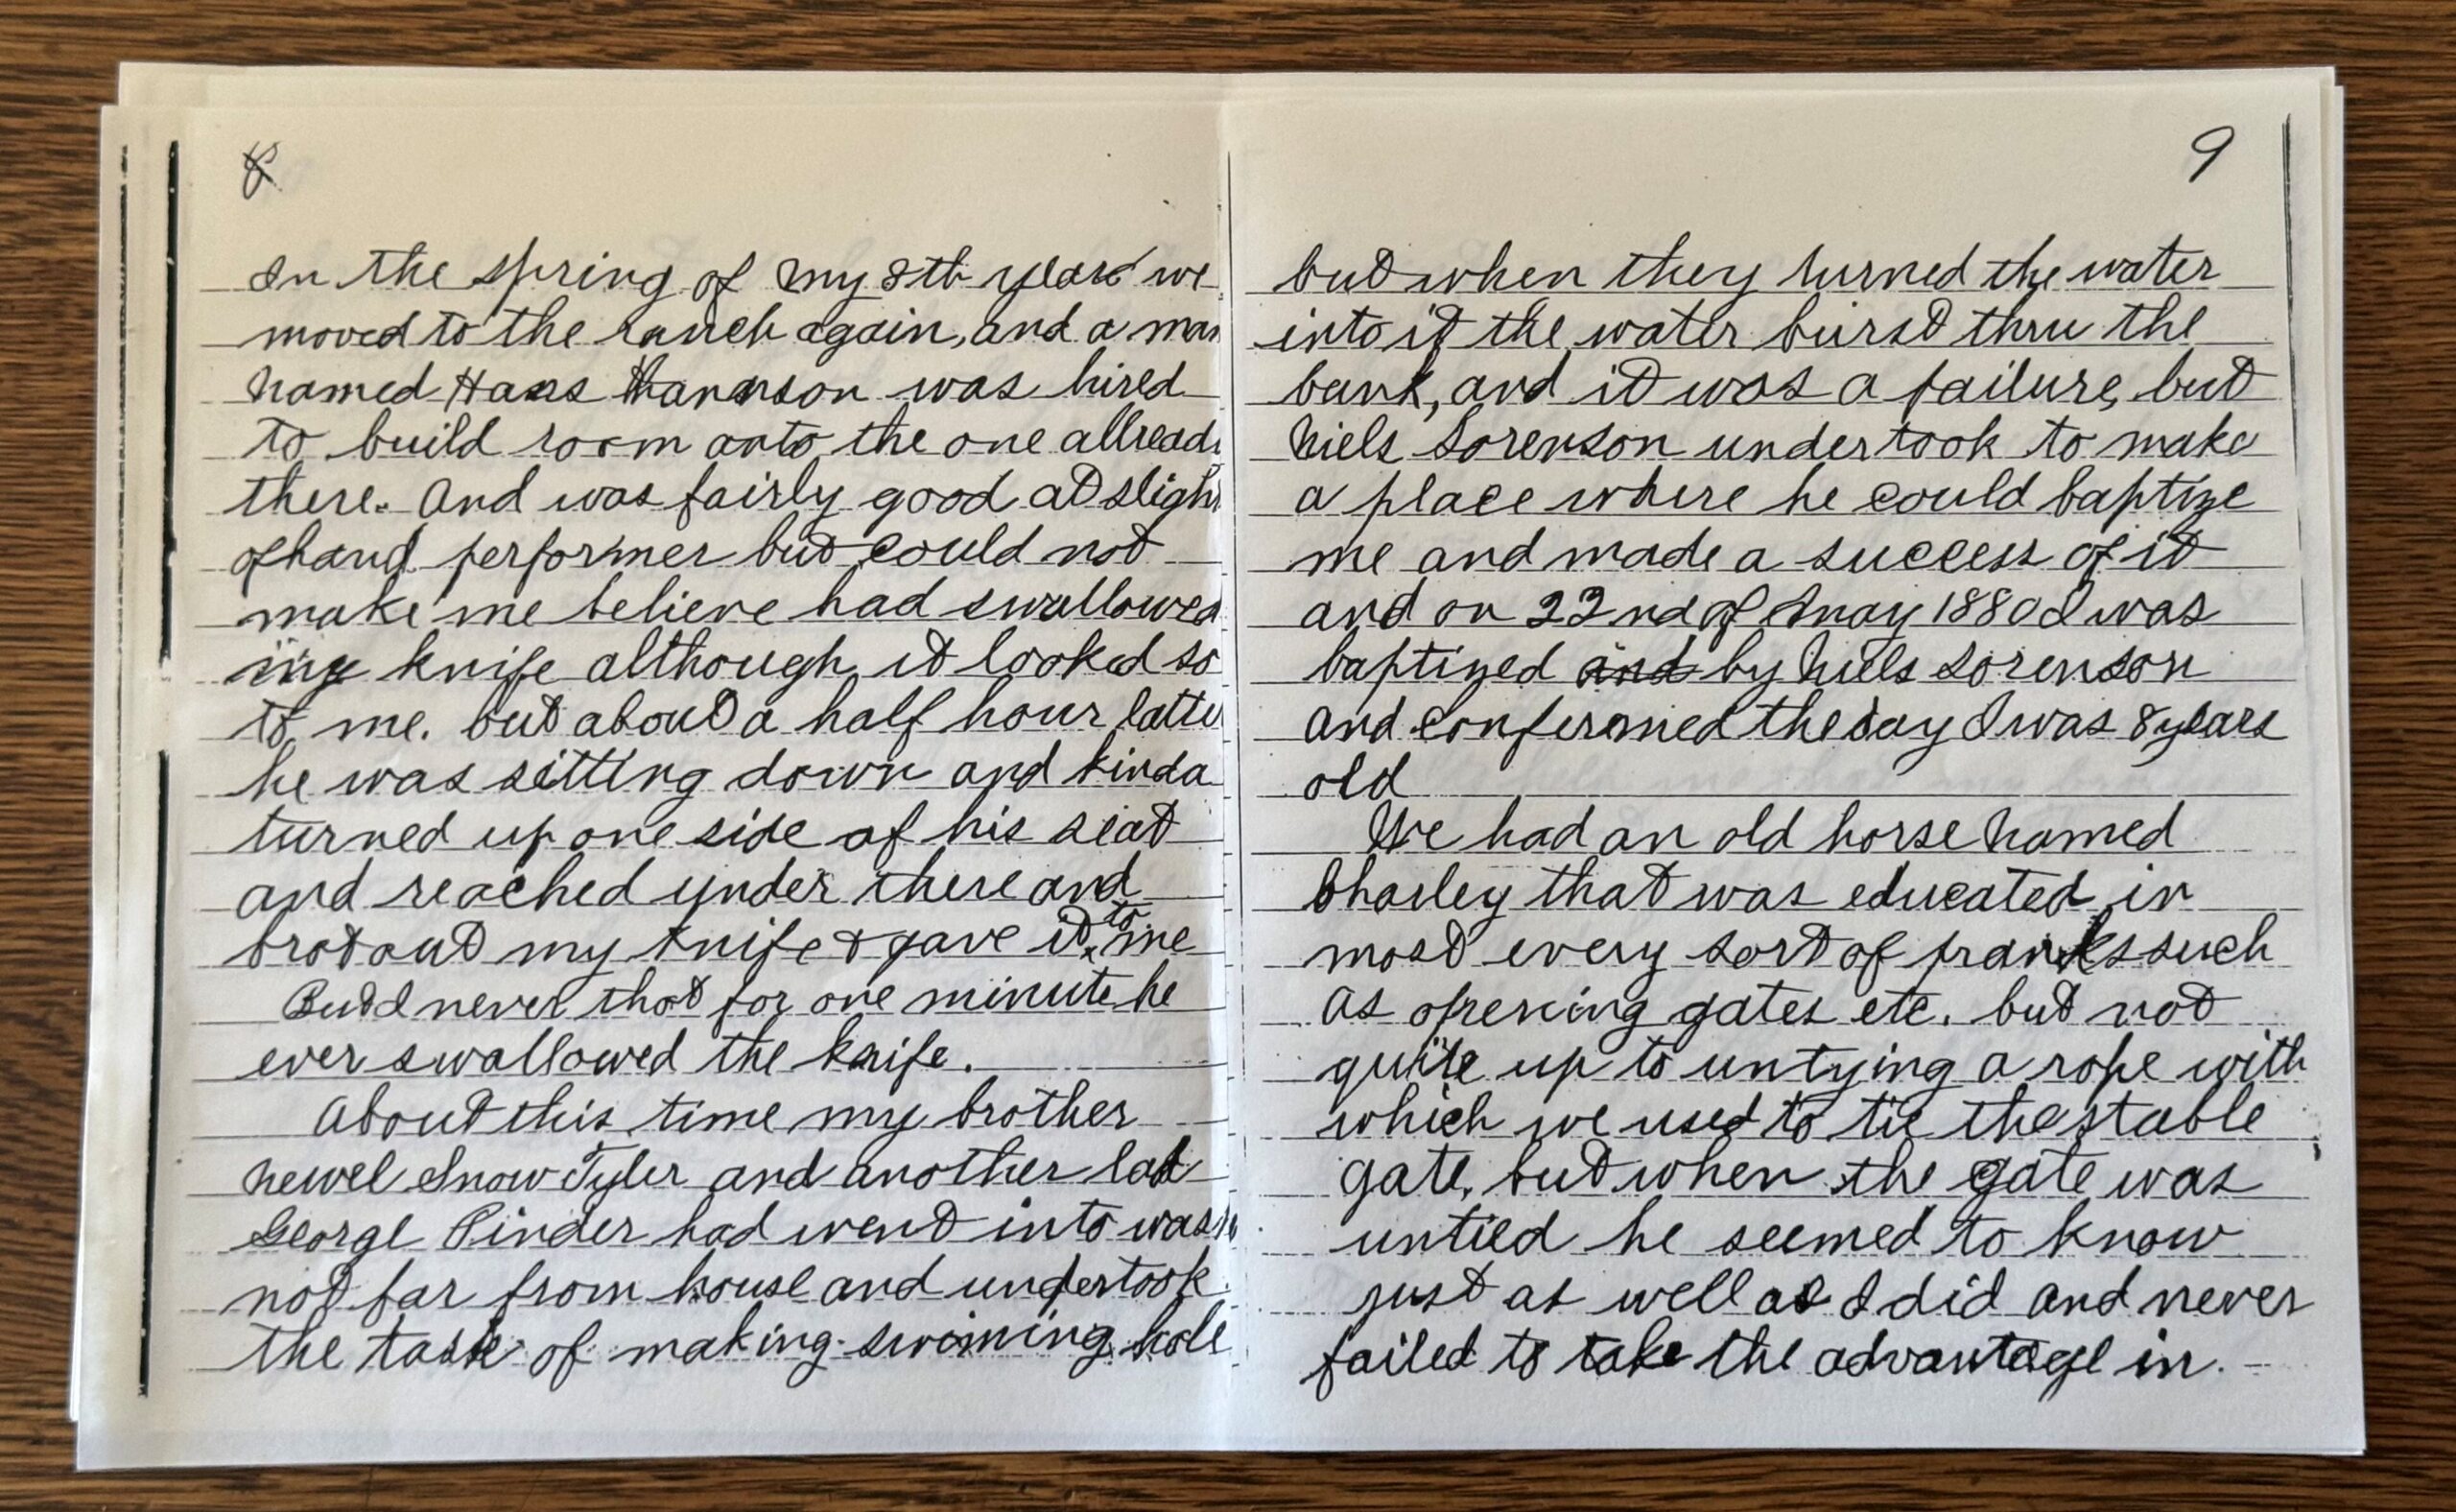 8
In the spring of my 8th year we
moved to the ranch again, and a man
named Hans Hanson was hired
to build room onto the one allready
there. And was fairly good at sligh
ofhand performer but could not
make me believe had swallowed
my knife although it looked so
to me. but about a half hour latte
he was sitting down and kinda
turned up one side of his seat
and reached under there and
brot out my knife & gave it to me
But I never thot for one minute he
ever swallowed the knife.
About this time my brother
Newel Snow Tyler and another lad
George Pinder had went into wash
not far from house and undertook
the task of making swiming hole
9
but when they turned the water
into it the water burst thru the
bank, and it was a failure, but
Niels Sorenson undertook to make
a place where he could baptize
me and made a success of it
and on 22nd of May 1880 I was
baptized and by Niels Sorenson
and confermed the day I was 8 years
old
We had an old horse named
Charley that was educated in
most every sort of pranks such
as opening gates etc. but not
quite up to untying a rope with
which we used to tie the stable
gate, but when the gate was
untied he seemed to know
just as well as I did and never
failed to take the advantage in.